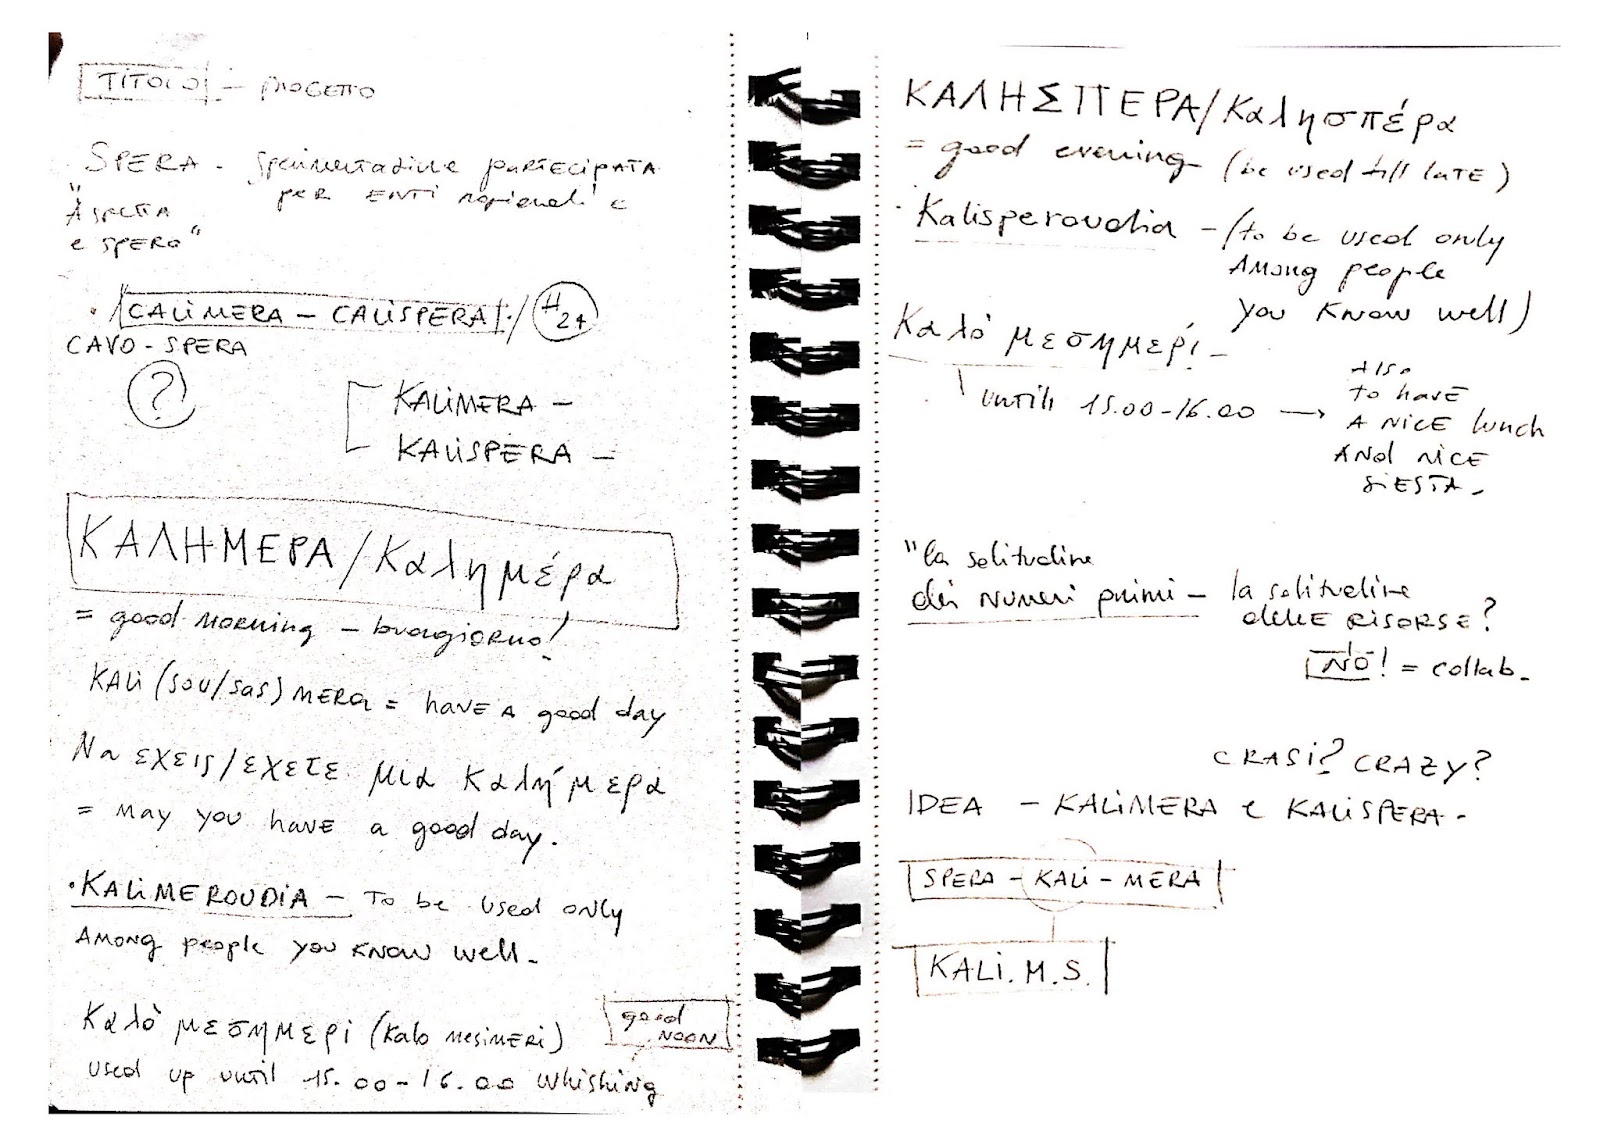 TITOLO - PROGETTO
SPERA - sperimentazione partecipata
per ENTI regionali e
"ASPETTA
e SPERA"
CALIMERA - CALISPERA / H 24
CAVO - SPERA
?
KALIMERA -
KALISPERA -
ΚΑΛΗΜΕΡΑ / Καλημέρα
= good morning - buongiorno!
KALI (SOU/SAS) MERA = HAVE A good day
Να εχεις / εχετε μια καλή μερα
= MAY YOU HAVE a good day.
• KALIMEROUDIA - To be used only
AMONG people you know well -
Καλό μεσημερι (Kalo mesimeri)
good NOON
used up until 15.00-16.00 Whishing
ΚΑΛΗΣΠΕΡΑ / Καλησπέρα
= good evening (be used till late)
• Kalisperoudia - (to be used only
AMONG people
you know well)
Καλό μεσημμερί -
until 15.00-16.00 →
Also
to have
A NICE lunch
And NICE
SIESTA -
"la solitudine
dei numeri primi - la solitudine
delle RISORSE?
NO! = collab -
CRASI? CRAZY?
IDEA - KALIMERA e KALISPERA -
SPERA - KALI - MERA
KALI. M. S.